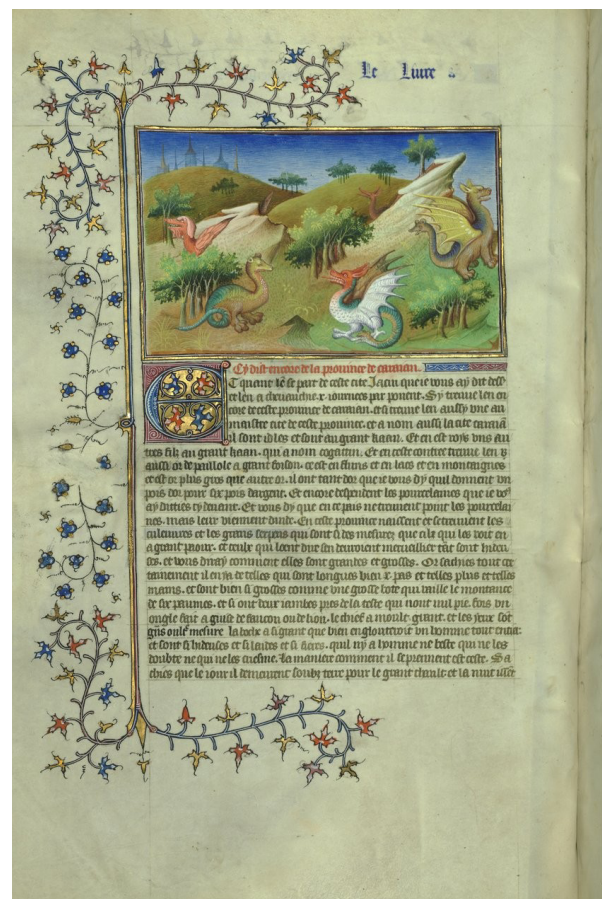 Le Liure
Cy dist encore de la prouince de caraian.
Et quant len se part de ceste cite Jacin que ie vous ay dit des
et len a cheuauche .x. iournees par ponent. Sy treuue len en
core de ceste prouince de caraian. et si treuue len aussy vne au
maistre cite de ceste prouince. et a nom aussi la cite caraian
il sont idles et sont au grant kaan. Et en est roys vns au
tres filz au grant kaan. qui a nom cogatin. Et en ceste contree treuue len
aussi or de paillole a grant foison. cest en fluns et en lacs et en montaignes
et est or plus gros que autre or. il ont tant dor que ie vous dy quil donnent vn
pois dor pour six pois dargent. Et encore despendent les pourcelaines que ie vous
ay dittes cy deuant. Et vous dy que en ce pais ne treuuent point les pourcelai
nes. mais leur viennent dinde. En ceste prouince naissent et se treuuent les
culeuures et les grans serpens qui sont si des mesurez que cilz qui les voit en
a grant paour. et ceulx qui loent dire sen deuroient merueillier tant sont hideu
ses. et vous diray comment elles sont grandes et grosses. Or sachies tout cer
tainement il en ya de telles qui sont longues bien x. pas et telles plus et telles
mains. et sont bien si grosses comme vne grosse bote qui vaille le montance
de six paumes. et si ont deux iambes pres de la teste qui nont nul pie. fors vn
ongle fait a guise de faucon ou de lion. le chief a moult grant. et les yeux sont
gris oultre mesure la boche a si grant que bien engloutiroit vn homme tout entier
et sont si hideuses et si laides et si fieres. quil ny a homme ne beste qui ne les
doubte ne qui ne les criesme. La maniere comment il se prennent est ceste. Sa
chies que le iour il demeurent soubz terre pour le grant chault et la nuit issent